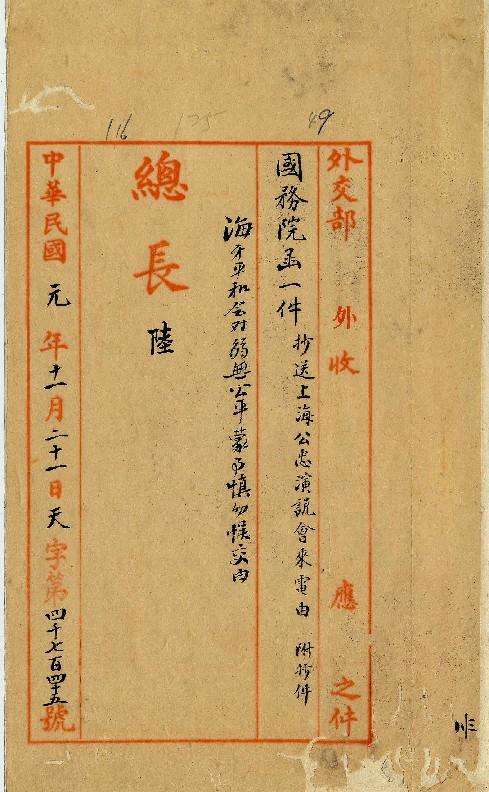 116
125
49
外交部 外收 應 之件
國務院函一件 抄送上海公忠演說會來電由 附抄件
海牙平和會对弱無公平蒙事慎勿悞交由
總長 陸
中華民國元年十一月二十一日天字第四千七百四十五號